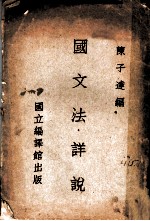 陳子達編
國文法·詳說
國立編譯館出版